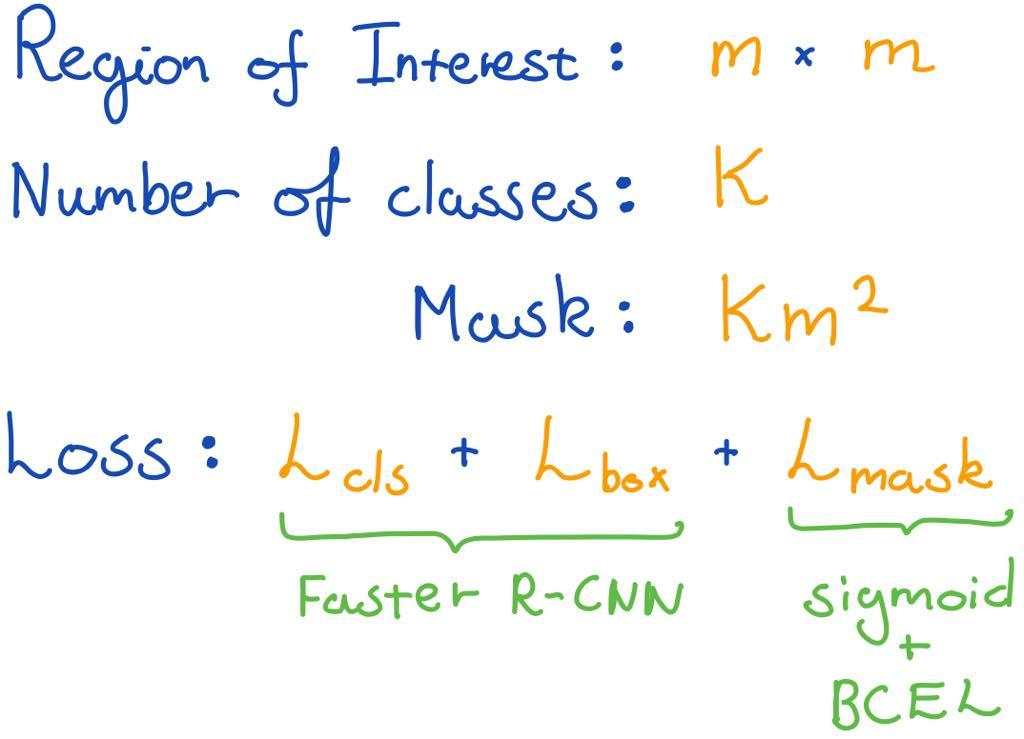 Region of Interest : m × m
Number of classes : K
Mask : Km²
Loss : L_cls + L_box + L_mask
Faster R-CNN sigmoid
+
BCEL